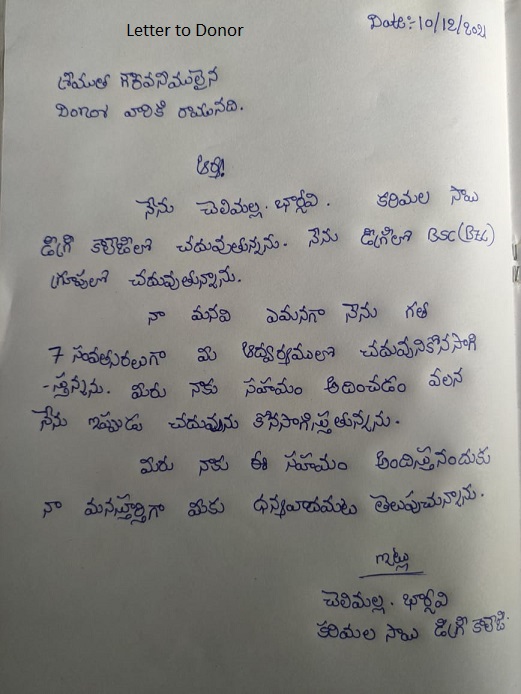 Letter to Donor
Date:- 10/12/2021
శ్రీమతి గౌరవనీయులైన
వారికి రాయునది.
ఆర్యా!
నేను చెలిమల్ల. భార్గవి. కరిమల సాయి
డిగ్రీ కాలేజిలో చదువుతున్నను. నేను డిగ్రీలో BSC(BZC)
గ్రూపులో చదువుతున్నాను.
నా మనవి ఎమనగా నేను గత
7 సంవత్సరలుగా మీ ఆధ్వర్యములో చదువునికొనసాగి
-స్తున్నను. మీరు నాకు సహయం అదించడం వలన
నేను ఇప్పుడు చదువును కొనసాగిస్తుతున్నను.
మీరు నాకు ఈ సహయం అందిస్తనందుకు
నా మనస్ఫూర్తిగా మీకు ధన్యవాదములు తెలుపుచున్నాను.
ఇట్లు
చెలిమల్ల. భార్గవి
కరిమల సాయి డిగ్రీ కాలేజి.